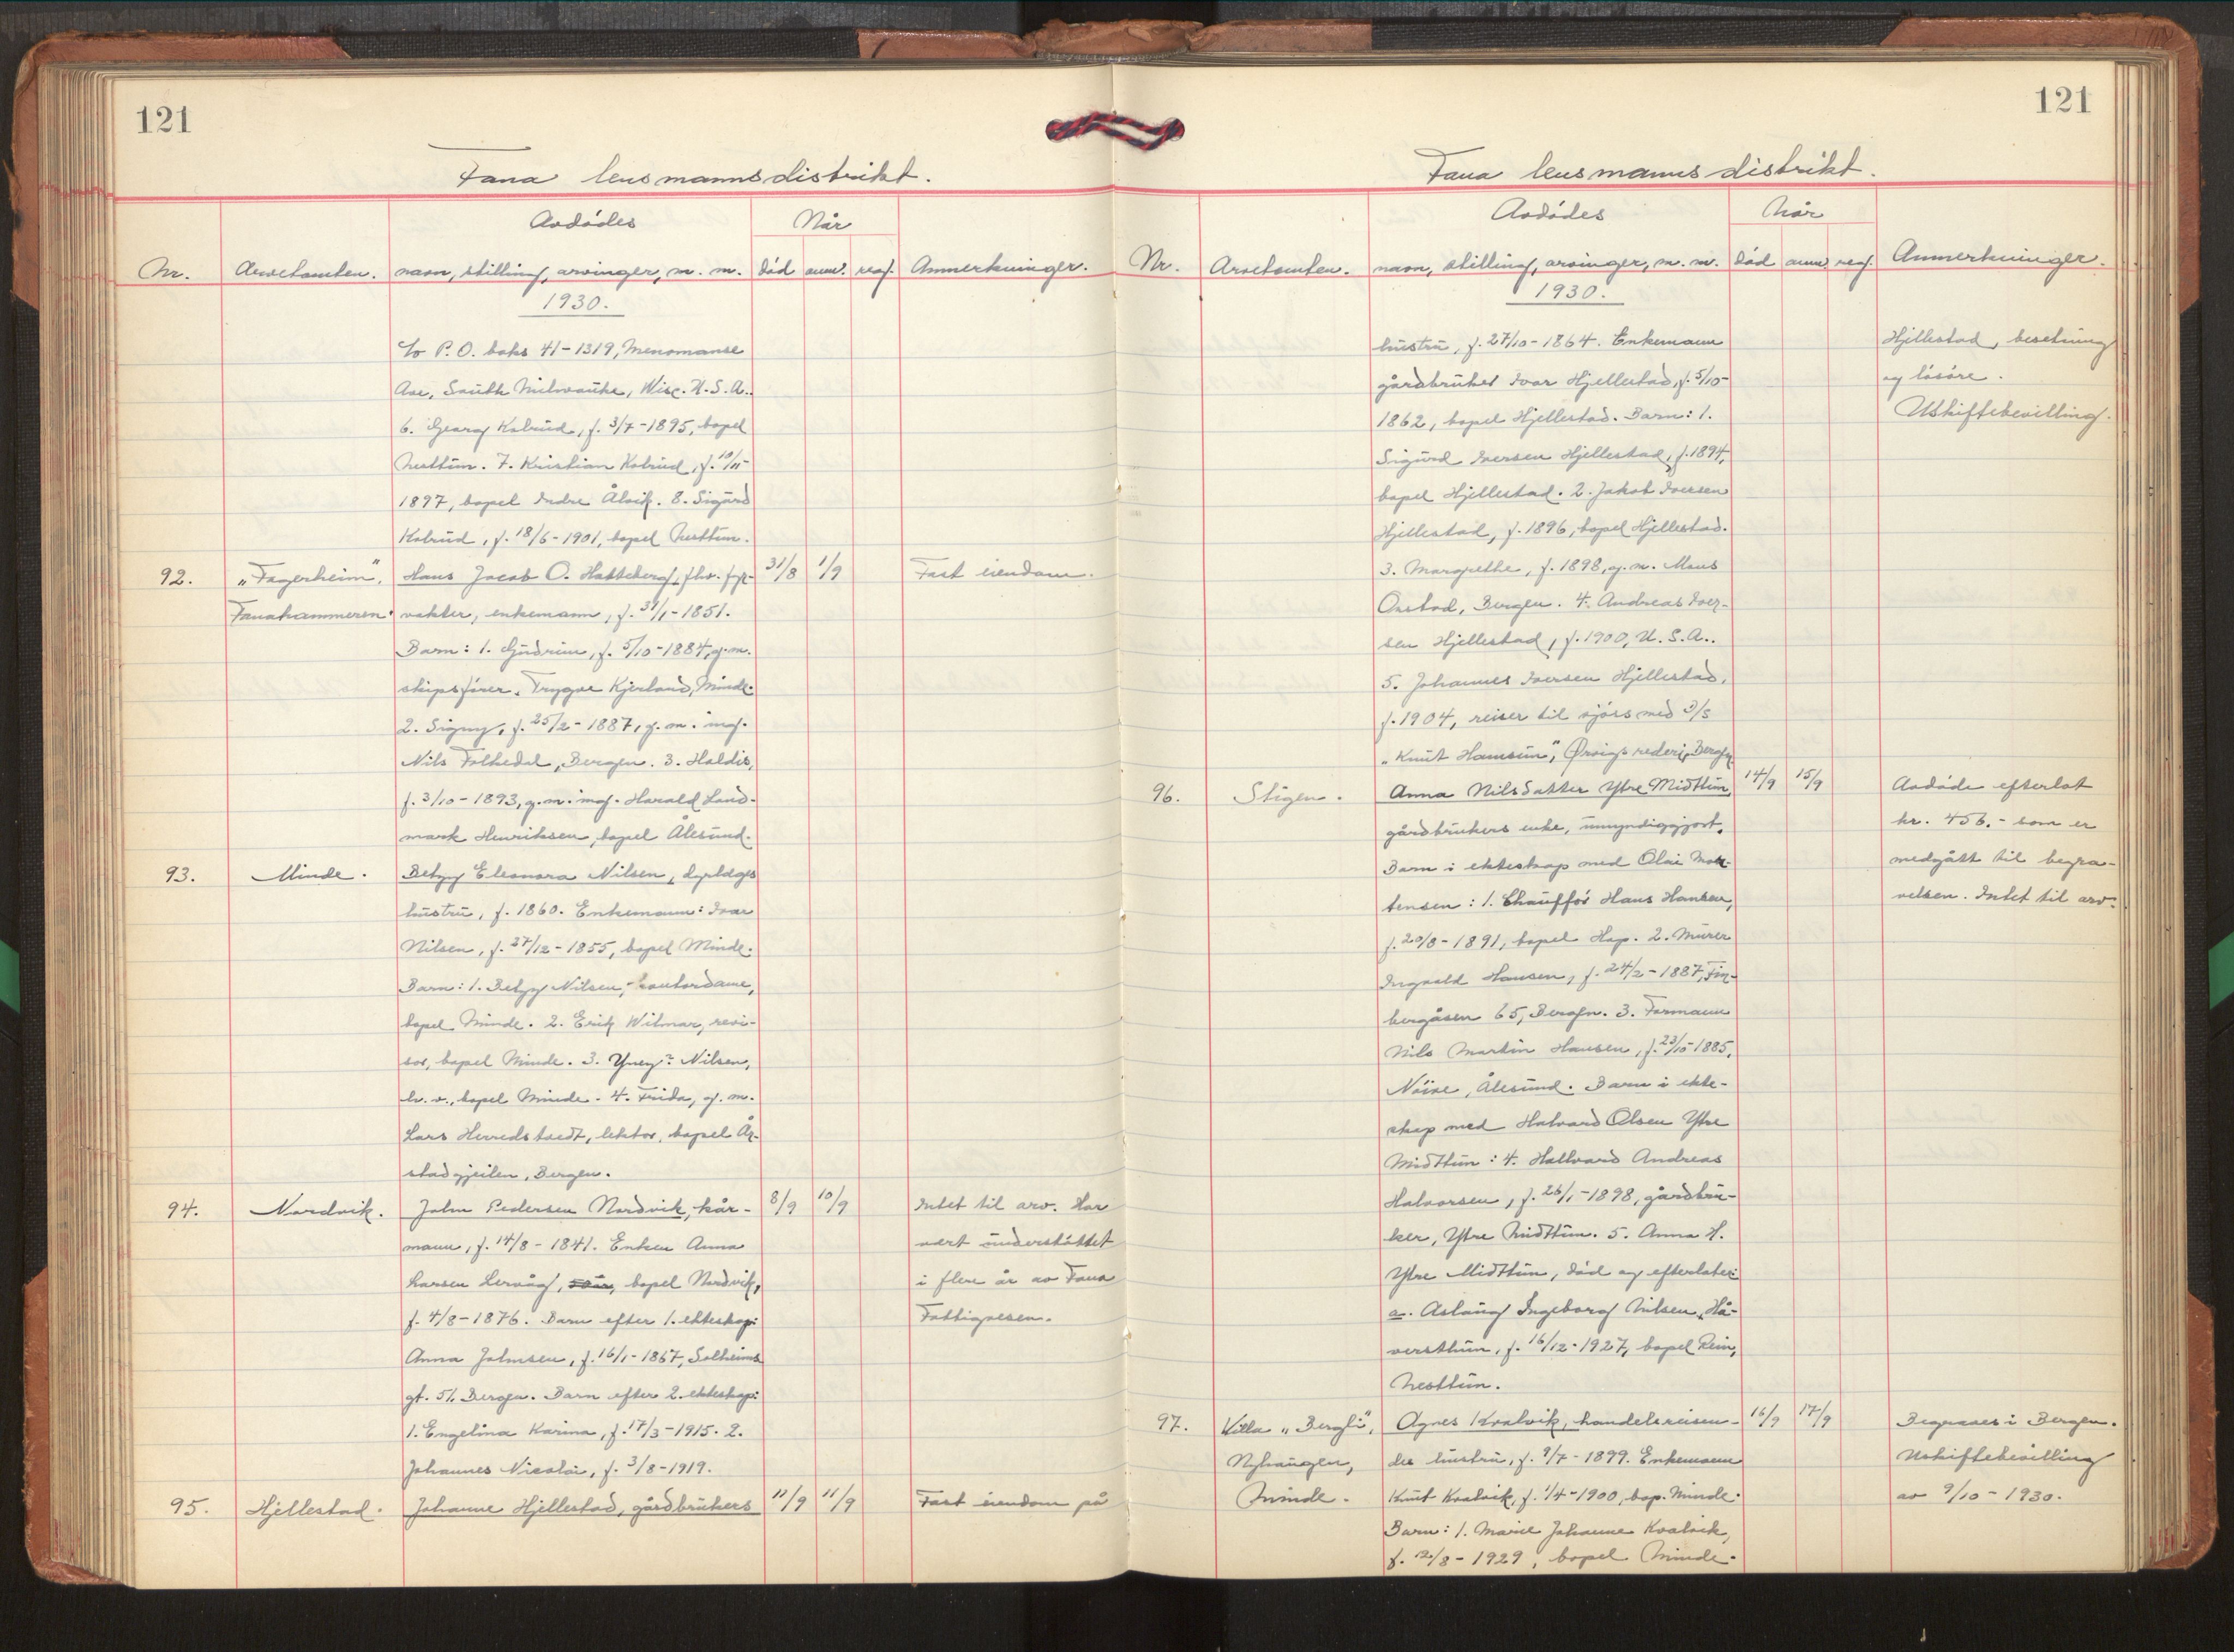 121
Fana lensmannsdistrikt.
Avdødes
Når
Nr.
Arvetomten.
navn, stilling, arvinger, m. m.
død
anm.
reg.
Anmerkninger.
1930.
c/o P.O. boks 41-1319, Menomanse
Ave, South Milwauke, Wisc. U.S.A..
6. Georg Kolrud, f. 3/7-1895, bopel
Nesttun. 7. Kristian Kolrud, f. 10/11-
1897, bopel Indre Ålvik. 8. Sigurd
Kolrud, f. 18/6-1901, bopel Nesttun.
92.
"Fagerheim",
Fanahammeren.
Hans Jacob O. Hatteberg, fhv. fyr-
31/8
1/9
Fast eiendom.
vakter, enkemann, f. 31/1-1851.
Barn: 1. Gudrun, f. 5/10-1884, g.m.
skipsfører Trygve Kjerland, Minde.
2. Signy, f. 25/2-1887, g.m. ing.
Nils Folkedal, Bergen. 3. Haldis,
f. 3/10-1893, g.m. ing. Harald Land-
mark Henriksen, bopel Ålesund.
93.
Minde.
Betzy Eleonora Nilsen,
hustru, f. 1860. Enkemann: Ivar
Nilsen, f. 27/12-1855, bopel Minde.
Barn: 1. Betzy Nilsen, kontordame,
bopel Minde. 2. Erik Wilmar, revi-
sor, bopel Minde. 3. Yney? Nilsen,
h.v., bopel Minde. 4. Frida, g.m.
Lars Herredstvedt, lektor, bopel År-
stadgjeilen, Bergen.
94.
Nordvik.
John Pedersen Nordvik, kår-
8/9
10/9
Intet til arv. Har
mann, f. 14/8-1841. Enken Anna
vært understøttet
Larsen Lervåg, bopel Nordvik,
i flere år av Fana
f. 4/8-1876. Barn efter 1. ekteskap:
Fattigvesen.
Anna Johnsen, f. 16/1-1867, Solheims
gt. 51. Bergen. Barn efter 2. ekteskap:
1. Engelina Karina, f. 17/3-1915. 2.
Johannes Nicolai, f. 3/8-1919.
95.
Hjellestad.
Johanne Hjellestad, gårdbrukers
11/9
11/9
Fast eiendom på
121
Fana lensmannsdistrikt.
Avdødes
Når
Nr.
Arvetomten.
navn, stilling, arvinger, m. m.
død
anm.
reg.
Anmerkninger.
1930.
hustru, f. 27/10-1864. Enkemann
Hjellestad, besetning
gårdbruker Ivar Hjellestad, f. 5/10-
og løsøre.
1862, bopel Hjellestad. Barn: 1.
Uskiftebevilling.
Sigurd Iversen Hjellestad, f. 1894,
bopel Hjellestad. 2. Jakob Iversen
Hjellestad, f. 1896, bopel Hjellestad.
3. Margrethe, f. 1898, g.m. Mons
Onstad, Bergen. 4. Andreas Iver-
sen Hjellestad, f. 1900, U.S.A..
5. Johannes Iversen Hjellestad,
f. 1904, reiser til sjøss med D/S
"Knut Hamsun", Ørvigs rederi, Bergen
96.
Stigen.
Anna Nilsdatter Ytre Midttun,
14/9
15/9
Avdøde efterlot
gårdbrukers enke, umyndiggjort.
kr. 456.- som er
Barn i ekteskap med Olai Mor-
medgått til begra-
tensen: 1. Chauffør Hans Hansen,
velsen. Intet til arv.
f. 20/8-1891, bopel Hop. 2. Murer
Ingvald Hansen, f. 24/2-1887, Fin-
bergåsen 65, Bergen. 3. Formann
Nils Martin Hansen, f. 23/10-1885,
Nørve, Ålesund. Barn i ekte-
skap med Halvard Olsen Ytre
Midttun: 4. Hallvard Andreas
Halvorsen, f. 26/1-1898, gårdbru-
ker, Ytre Midttun. 5. Anna H.
Ytre Midttun, død og efterlater:
a. Aslaug Ingeborg Nilsen, Hå-
versthun, f. 16/12-1927, bopel Rein,
Nesttun.
97.
Villa "Bergli",
Nyhaugen,
Minde.
Agnes Kvalvik, handelsreisen-
16/9
17/9
Begraves i Bergen.
des hustru, f. 9/7-1899. Enkemann
Uskiftebevilling
Knut Kvalvik, f. 1/4-1900, bop. Minde.
av 9/10-1930.
Barn: 1. Marie Johanne Kvalvik,
f. 12/8-1929, bopel Minde.